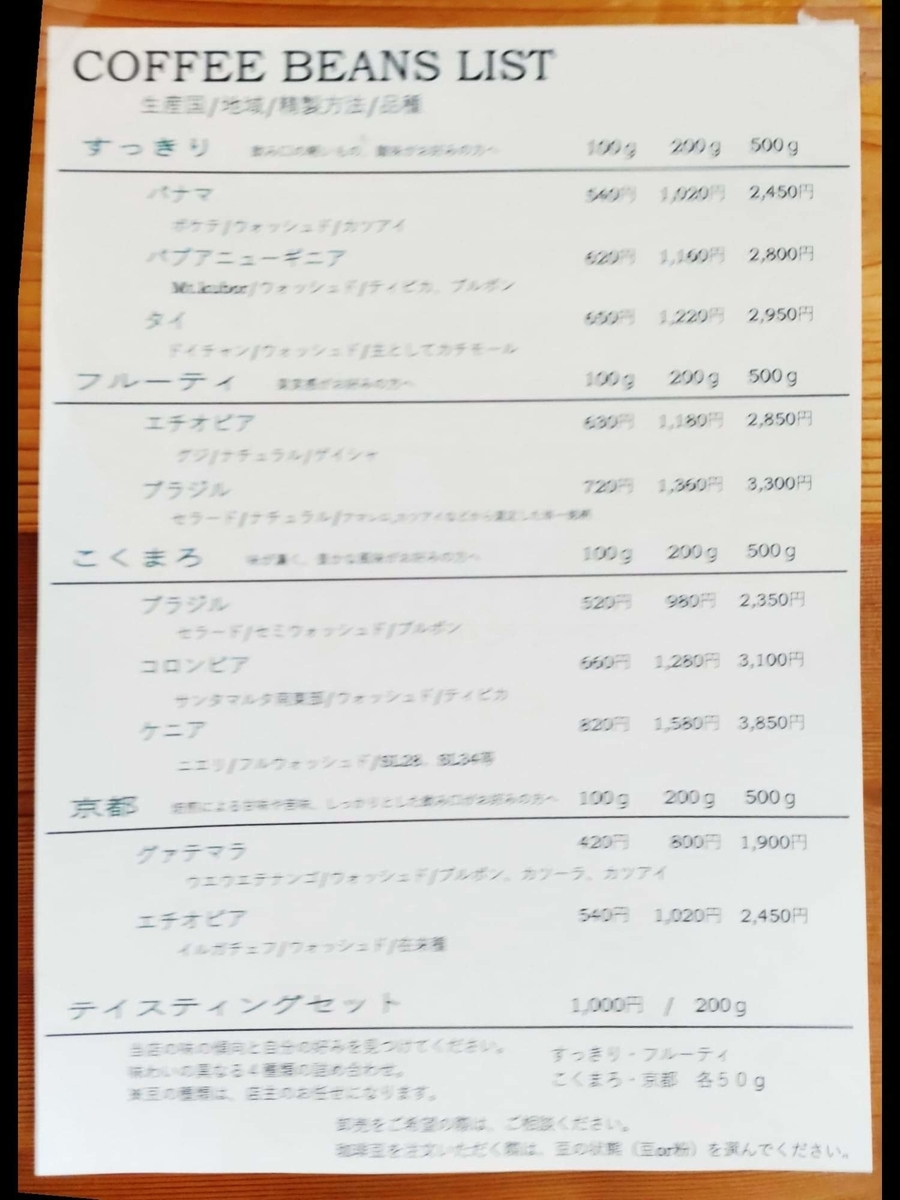 COFFEE BEANS LIST
生産国/地域/精製方法/品種
すっきり 飲み口の軽いもの、酸味がお好みの方へ 100g 200g 500g
パナマ 540円 1,020円 2,450円
ボケテ/ウォッシュド/カツアイ
パプアニューギニア 620円 1,160円 2,800円
Mt.kubor/ウォッシュド/ティピカ、ブルボン
タイ 1,220円 2,950円
ドイチャン/ウォッシュド/主としてカチモール
フルーティ 果実感がお好みの方へ 100g 200g 500g
エチオピア 630円 1,180円 2,850円
グジ/ナチュラル/ゲイシャ
ブラジル 720円 1,360円 3,300円
セラード/ナチュラル/カツアイなどから選定した
こくまろ 味が濃く、豊かな風味がお好みの方へ 100g 200g 500g
ブラジル 520円 980円 2,350円
セラード/セミウォッシュド/ブルボン
コロンビア 660円 1,280円 3,100円
サンタマルタ南東部/ウォッシュド/ティピカ
ケニア 820円 1,580円 3,850円
ニエリ/フルウォッシュド/SL28、SL34等
京都 焙煎による甘味や苦味、しっかりとした飲み口がお好みの方へ 100g 200g 500g
グァテマラ 420円 800円 1,900円
ウエウエテナンゴ/ウォッシュド/ブルボン、カツーラ、カツアイ
エチオピア 540円 1,020円 2,450円
イルガチェフ/ウォッシュド/在来種
テイスティングセット 1,000円 / 200g
当店の味の傾向と自分の好みを見つけてください。 すっきり・フルーティ
味わいの異なる4種類の詰め合わせ。 こくまろ・京都 各50g
※豆の種類は、店主のお任せになります。
卸売をご希望の際は、ご相談ください。
珈琲豆を注文いただく際は、豆の状態（豆or粉）を選んでください。